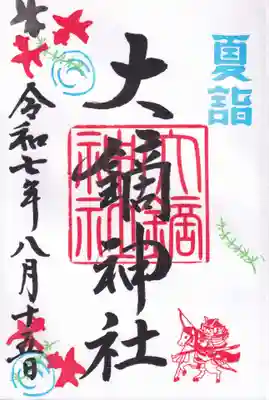 夏詣
大鏑神社
大鏑
神社
令和七年八月十五日